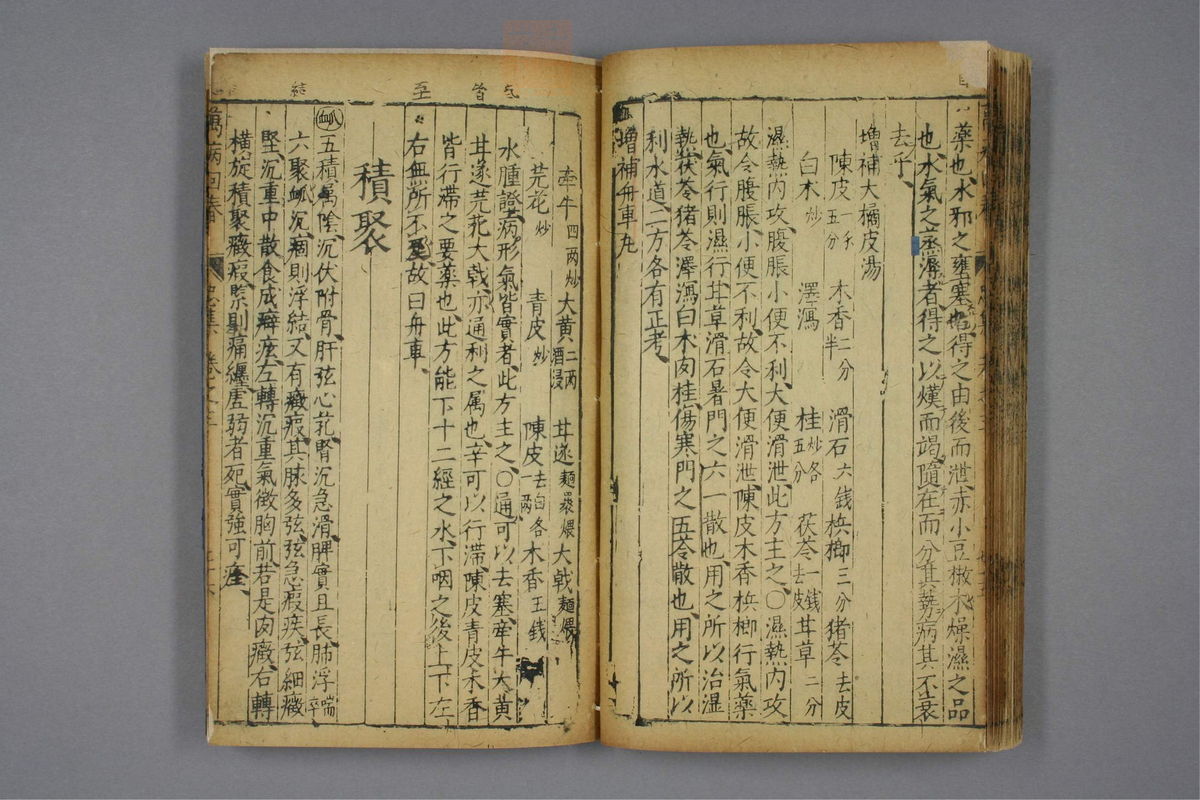 藥也水邪之壅塞者得之由後而泄赤小豆椒木燥濕之品
也水氣之蒸溽者得之以熯而竭隨在而分其勢病其不衰
去乎
增補大橘皮湯
陳皮一錢五分 木香二分半 滑石六錢 梹榔三分 猪苓去皮
白朮炒 澤瀉 桂炒各五分 茯苓一錢去皮 甘草二分
濕熱內攻腹脹小便不利大便滑泄此方主之○濕熱內攻
故令腹脹小便不利故令大便滑泄陳皮木香梹榔行氣藥
也氣行則濕行甘草滑石暑門之六一散也用之所以治湿
熱茯苓猪苓澤瀉白朮肉桂傷寒門之五苓散也用之所以
利水道二方各有正考
增補舟車丸
牽牛四两炒 大黃二两酒浸 甘遂麵裹煨 大戟麵煨
芫花炒 青皮炒 陳皮去白各一两 木香五錢
水腫證病形氣皆實者此方主之○通可以去塞牽牛大黃
甘遂芫花大戟亦通利之属也辛可以行滞陳皮青皮木香
皆行滞之要藥也此方能下十二經之水下咽之後上下左
右無所不至故曰舟車
積聚
五積屬陰沉伏附骨肝弦心芤腎沉急滑脾實且長肺浮喘卒
六聚沉痼則浮結又有癥瘕其脉多弦弦急瘕疾弦細癥
堅沉重中散食成癖痃左轉沉重氣徵胸前若是肉癥右轉
橫旋積聚癥瘕緊則痛纏虛弱者死實強可痊
萬病回春
卷之三